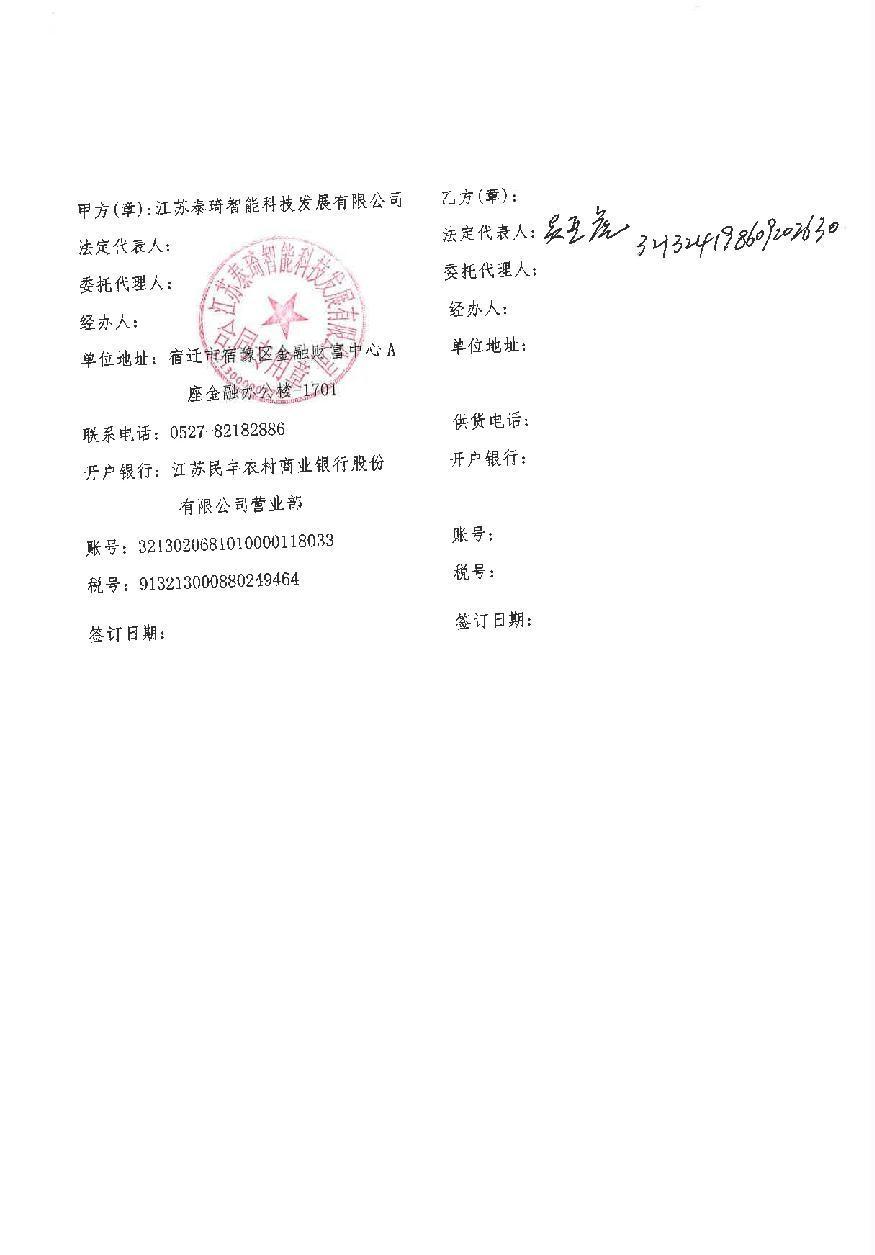 甲方(章):江苏泰琦智能科技发展有限公司
法定代表人:
委托代理人:
经办人:
单位地址: 宿迁市宿豫区金融财富中心 A
座金融办公楼-1701
联系电话: 0527-82182886
开户银行: 江苏民丰农村商业银行股份
有限公司营业部
账号: 3213020681010000118033
税号: 913213000880249464
签订日期:
江苏泰琦智能科技发展有限公司
合同专用章
乙方(章):
法定代表人: 321324198609202630
委托代理人:
经办人:
单位地址:
供货电话:
开户银行:
账号:
税号:
签订日期: